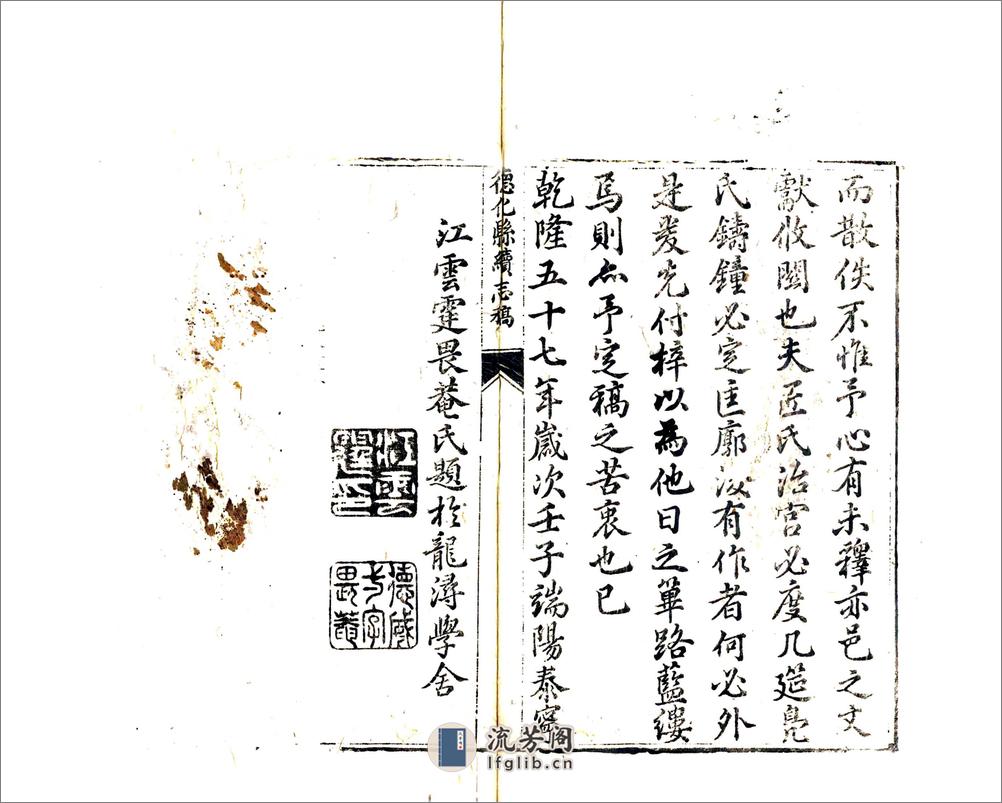 而散佚不惟予心有未釋亦邑之文
獻攸關也夫匠氏治宮必度几筵鳧
氏鑄鐘必定匡廓後有作者何必外
是爰先付梓以為他日之篳路藍縷
焉則亦予定稿之苦衷也已
乾隆五十七年歲次壬子端陽泰寧
德化縣續志稿
江雲霆畏菴氏題於龍潯學舍
江雲霆印
德威
字
畏菴
流芳阁
lfglib.cn